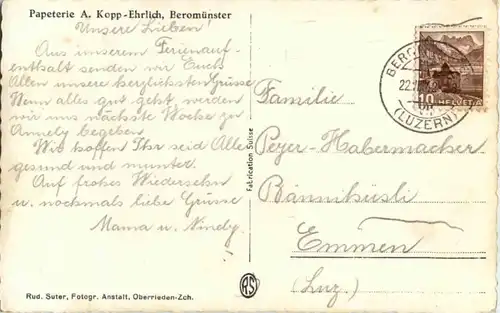 Papeterie A. Kopp-Ehrlich, Beromünster
Unsere Lieben
Aus unserem Ferienauf-
enthalt senden wir Euch
Allen unsere herzlichsten Grüsse
Wenn alles gut geht werden
wir uns nächste Woche zu
Annely begeben.
Wir hoffen Ihr seid Alle
gesund und munter.
Auf frohes Wiedersehn
u. nochmals liebe Grüsse
Mama u. Nindy.
Fabrication Suisse
RS
Rud. Suter, Fotogr. Anstalt, Oberrieden-Zch.
22.
(LUZERN)
10 HELVETIA
Familie
Peyer-Habermacher
Bännihüsli
Emmen
(Luz.)